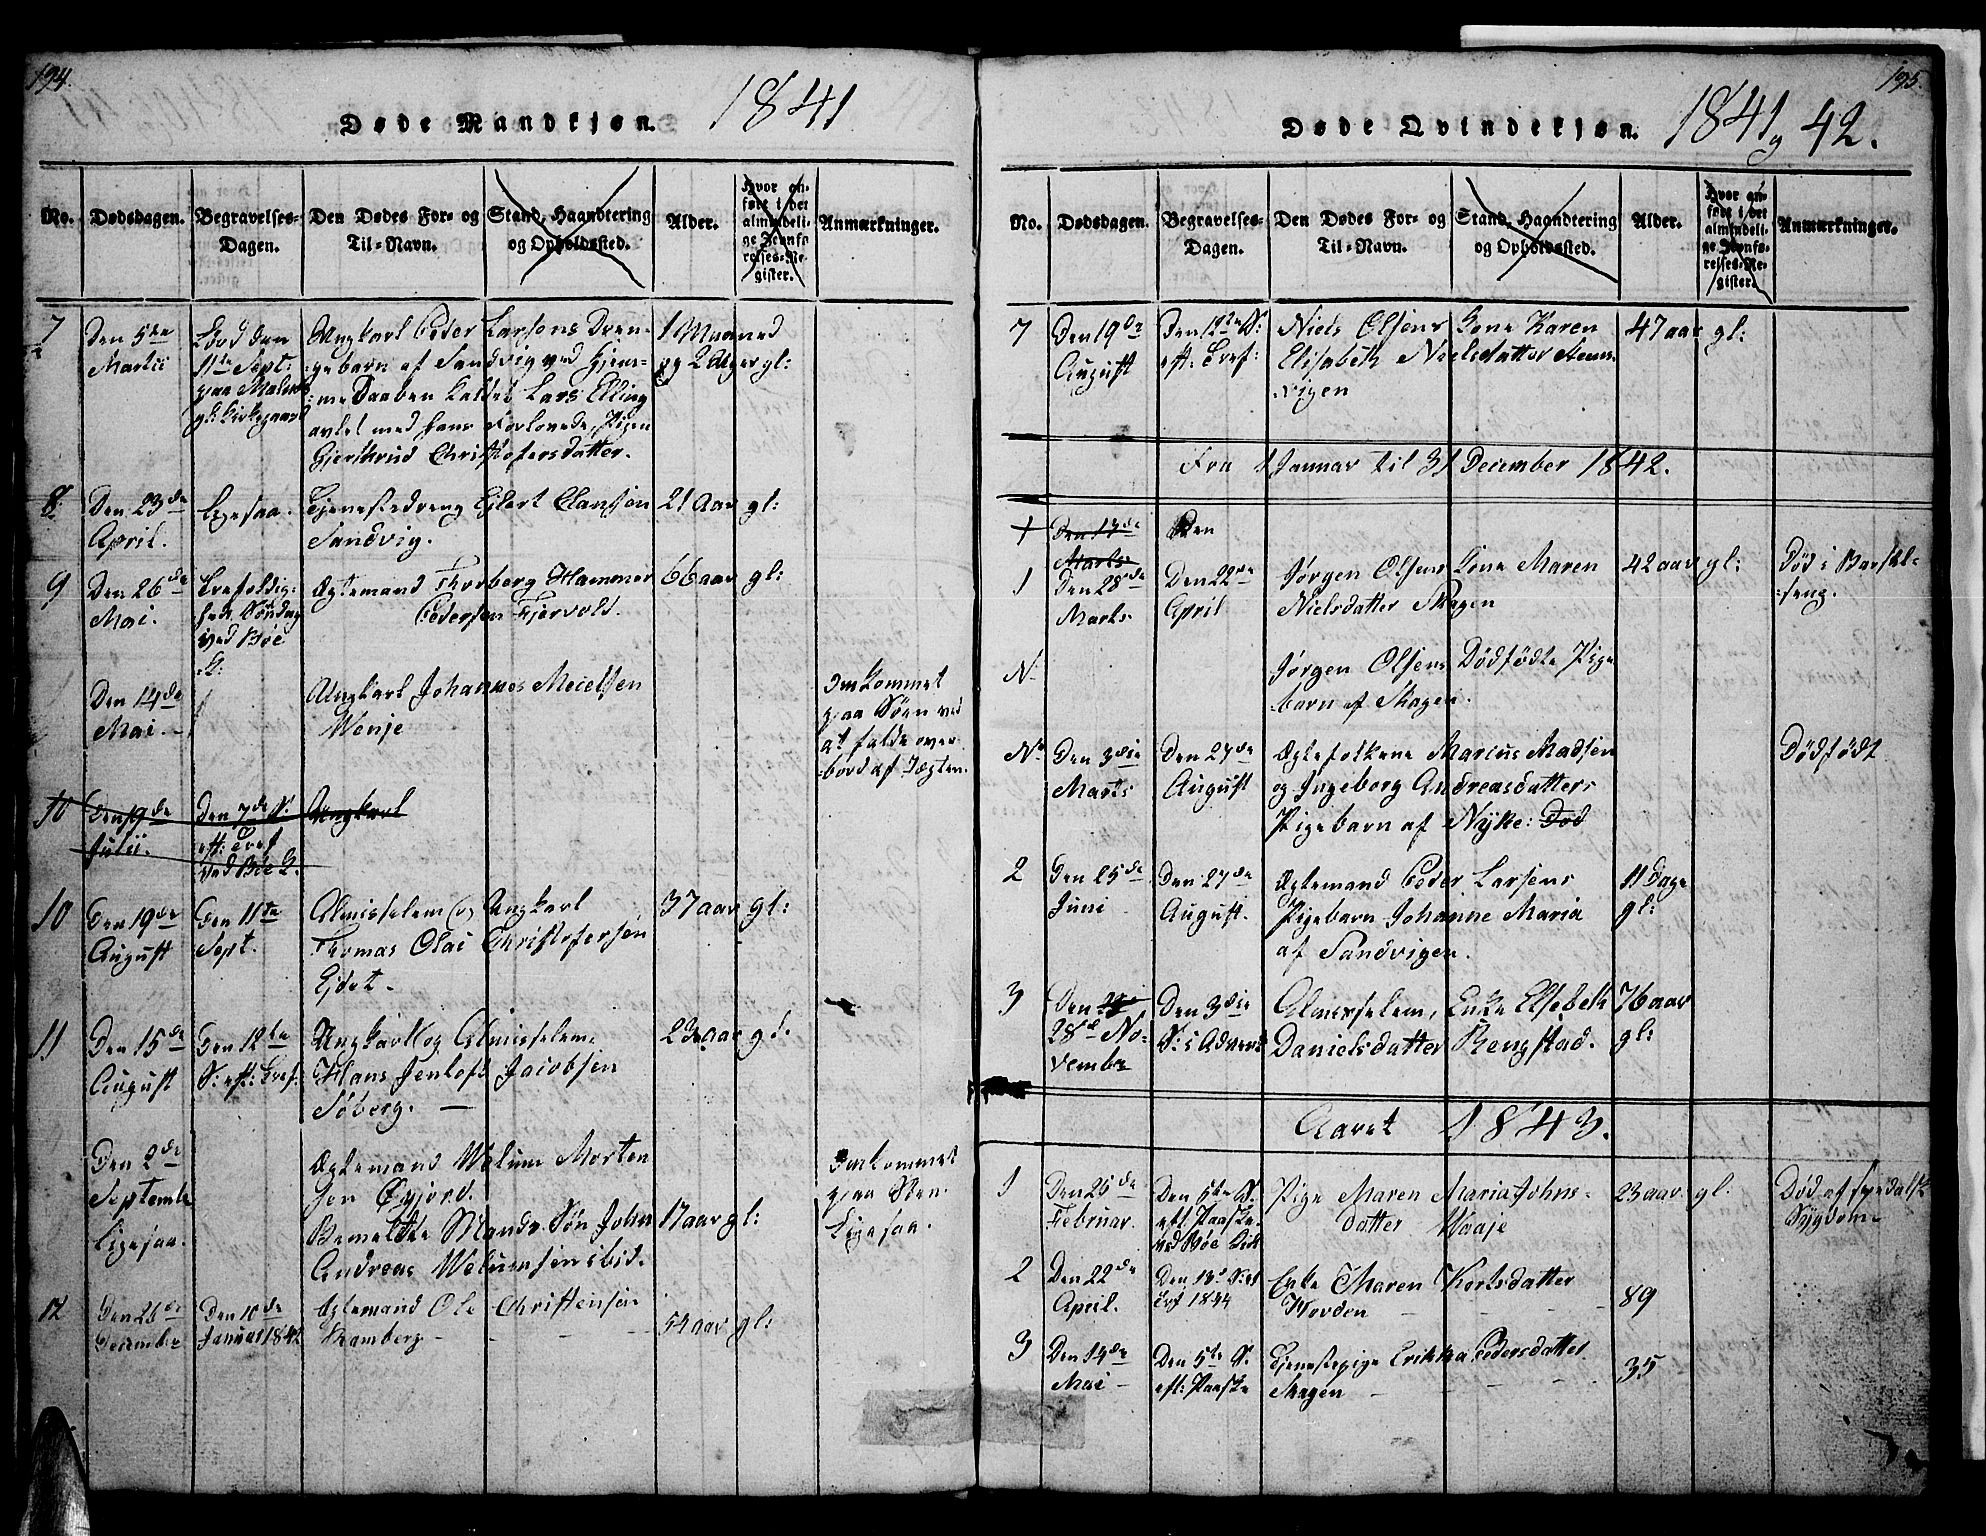 194.
Døde Mandkjøn. 1841
No.
Dødsdagen.
Begravelses-
Dagen.
Den Dødes For- og
Til-Navn.
Stand, Haandtering
og Opholdssted.
Alder.
Hvor an-
ført i det
almindeli-
ge Jevnfø-
relses-Re-
gister.
Anmærkninger.
7
Den 5te
Martii
Jord den
11te Sept:
paa Malnes
gl: Kirkegaard
Ungkarl Peder Larsens Dren-
gebarn af Sandvig ved Hjem-
me Daaben kaldet Lars Elling
avlet med hans Forlovede, Pigen
Gjerthrud Christofersdatter.
1 Maaned
og 2 Uger gl:
8
Den 23de
April.
Ligesaa.
Tjenestedreng Eilert Clausen
Sandvig.
21 Aar gl:
9
Den 26de
Mai.
Trefoldig-
heds Søndag
ved Bøe
K:
Ægtemand Thorberg Hammer
Pedersen Fjervold.
66 aar gl:
Den 14de
Mai. -
Ungkarl Johannes Meielsen
Wenje
Omkommet
paa Søen ved
at falde over-
bord af Jægten.
10
Den 19de
Julii.
Den 7de S:
eft: Tref
ved Bøe K.
Ungkarl
10
Den 19de
August
Den 11te
Sept.
Almisselem og Ungkarl
Thomas Olai Christofersen
Eidet.
37 aar gl:
11
Den 15de
August
Den 12te
S: eft: Tref.
Ungkarl og Almisselem,
Hans Jentoft Jacobsen
Søberg. —
23 aar gl:
Den 2de
Septembr
Ligesaa.
Ægtemand Welum Morten
sen Øgjord.
Bemeldte Mands Søn John
Andreas Welumsen ibid.
17 aar gl:
Omkommet
paa Søen.
Ligesaa.
12
Den 26de
December
Den 10de
Januar 1842
Ægtemand Ole Christensen
Ramberg - - - -
54 aar gl:
195.
Døde Qvindekjøn. 1841 og 42.
No.
Dødsdagen.
Begravelses-
Dagen.
Den Dødes For- og
Til-Navn.
Stand, Haandtering
og Opholdssted.
Alder.
Hvor an-
ført i det
almindeli-
ge Jevnfø-
relses-Re-
gister.
Anmærkninger.
7
Den 19de
August
Den 12te S:
eft: Tref:
Niels Olsens Kone Karen
Elisabeth Nielsdatter
vigen
47 aar gl:
Fra 1 Januar til 31 December 1842.
1
Den 13de
Marts
Den
1
Den 28de
Marts.
Den 22de
April
Jørgen Olsens Kone Maren
Nielsdatter Skagen
42 aar gl:
Død i Barsel-
seng.
N.
Jørgen Olsens Dødfødte Pige
barn af Skagen.
N.
Den 3die
Marts
Den 27de
August
Ægtefolkene Marius Madsen
og Ingeborg Andreasdatters
Pigebarn af Nyke: Død
Dødfødt
2
Den 25de
Juni
Den 27de
August.
Ægtemand Peder Larsens
Pigebarn Johanne Maria
af Sandvigen.
11 Dage
gl:
3
Den
28de No-
vembr
Den 3die
S: i Advent
Almisselem, Enke Elsebeth
Danielsdatter Rengstad.
76 aar
gl:
Aaret 1843.
1
Den 25de
Februar.
Den 5te S.
eft Paaske
ved Bøe Kirk
Pige Maren Maria Johns-
datter Waaje
23 aar. gl.
Død af spedalsk
Sygdom
2
Den 22de
April.
Den 13d S: ef
Tref 1844
Enke Maren Korlsdatter
Hovden - - -
89
3
Den 14de
Mai -
Den 5te S.
eft: Paaske
Tjenestepige Erikka Pedersdatter
Skagen - - - -
35